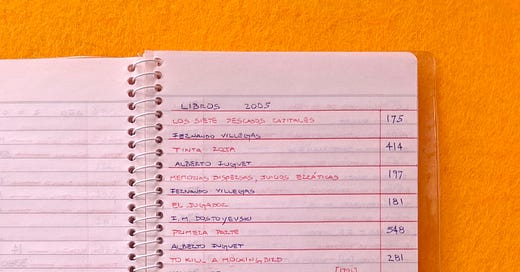 LIBROS 2005
LOS SIETE PECADOS CAPITALES 175
FERNANDO VILLEGAS
TINTA ROJA 414
ALBERTO FUGUET
MEMORIAS DISPERSAS, JUICIOS ERRÁTICOS 197
FERNANDO VILLEGAS
EL JUGADOR 181
DOSTOYEVSKI
PRIMERA PARTE 548
ALBERTO FUGUET
TO KILL A MOCKINGBIRD 281